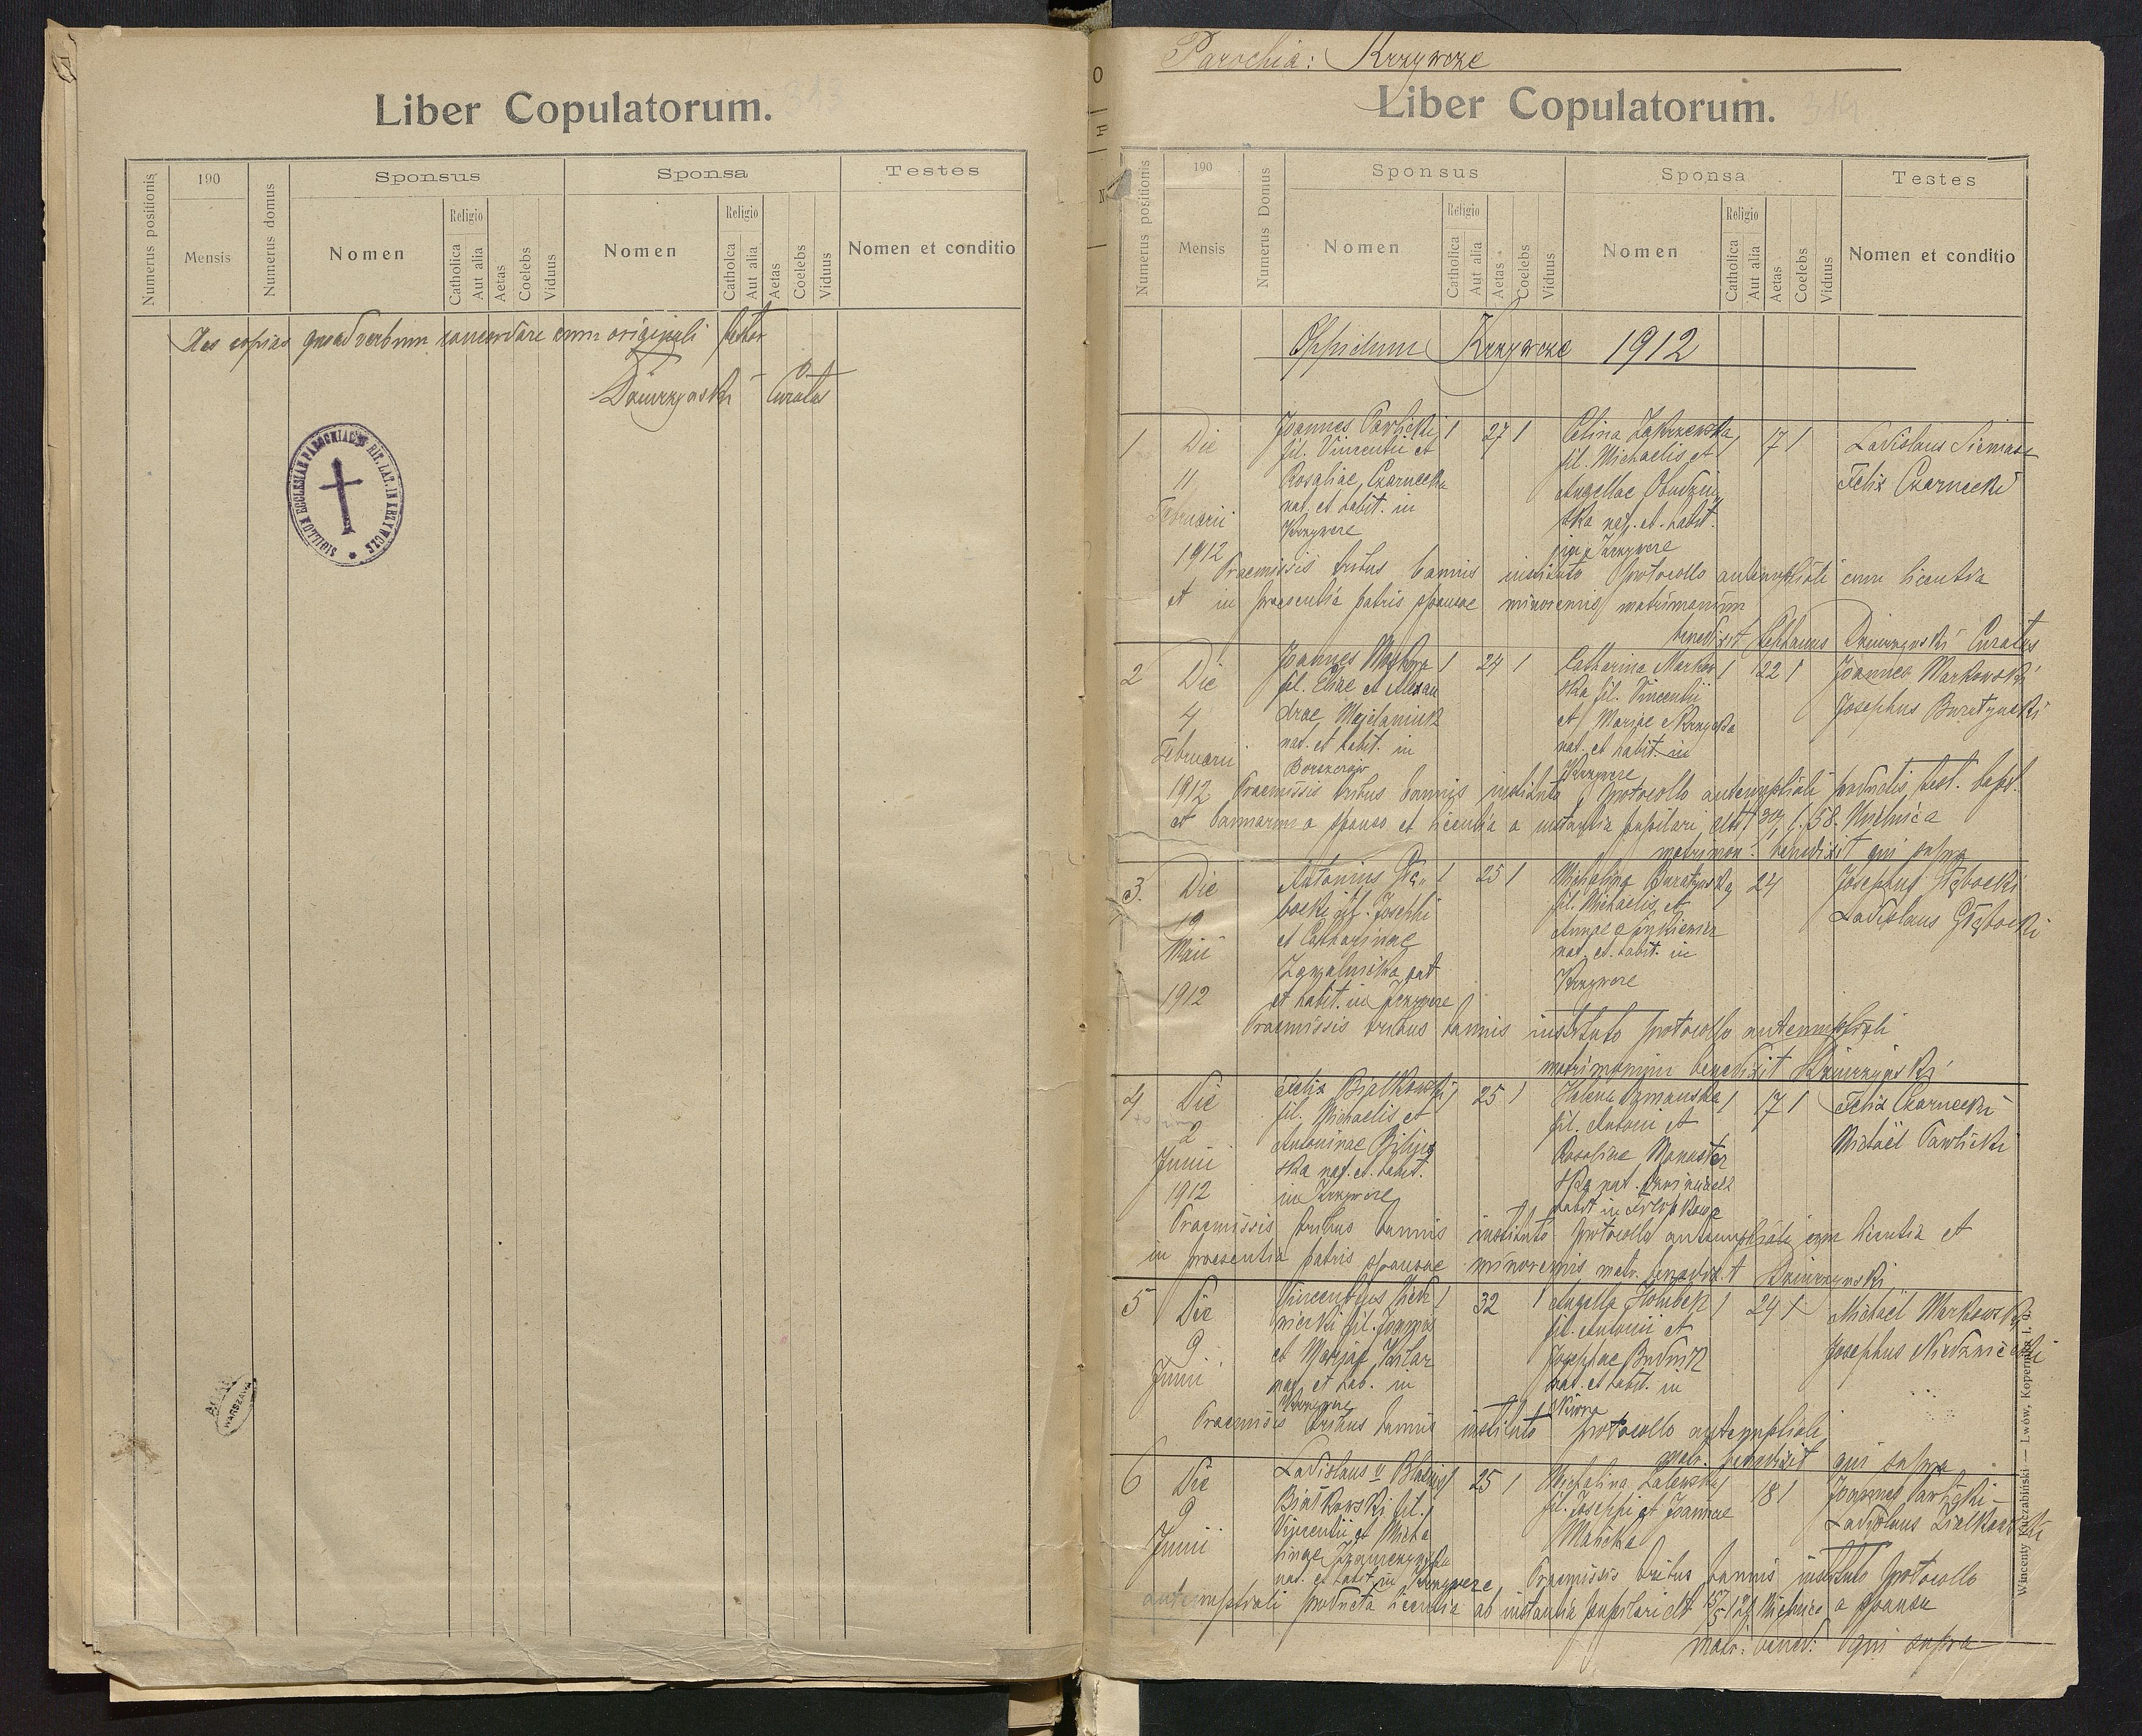 Liber Copulatorum.
Numerus positionis
190
Mensis
Numerus domus
Sponsus
Nomen
Religio
Catholica
Aut alia
Aetas
Coelebs
Viduus
Sponsa
Nomen
Religio
Catholca
Aut alia
Aetas
Coelebs
Viduus
Testes
Nomen et conditio
Has copias quoad verbum concordare cum originali testor
Curatus
SIGILLUM ECCLESIAE PAROCHIALIS RIT. LAT. IN KRZYWCZE
WARSZAWA
Parochia: Krzywcze
Liber Copulatorum.
314
Numerus positionis
190
Mensis
Numerus Domus
Sponsus
Nomen
Religio
Catholica
Aut alia
Aetas
Coelebs
Viduus
Sponsa
Nomen
Religio
Catholica
Aut alia
Aetas
Coelebs
Viduus
Testes
Nomen et conditio
Oppidum Krzywcze 1912
1
Die
11
Februarii
1912
Joannes Pawlicki
fil. Vincentii et
Rosaliae Czarnecka
nat. et habit. in
Krzywcze
1 27 1
Celina Zakrzewska
fil. Michaelis et
Angellae
ska nat. et habit.
in Krzywcze
17 1
Ladislaus
Felix Czarnecki
Praemissis tribus bannis instituto protocollo antenuptiali cum licentia
et in praesentia patris sponsae minorennis matrimonium
benedixit Curatus
2
Die
4
Februarii
1912
Joannes
fil. Eliae et Alexan
drae Majdaniuk
nat. et habit. in
1 24 1
Catharina Markow
ska fil. Vincentii
et Mariae
nat. et habit. in
Krzywcze
1 22 1
Joannes Markowski
Josephus Buratynski
Praemissis tribus bannis instituto protocollo antenuptiali productis test. bapt.
et bannorum a sponso et licentia a instantia pupilari 58. Mielnica
matrimon. benedixit qui supra
3.
Die
19
Maii
1912
Antonius Głę-
bocki fil. Josephi
et Catharinae
nat
et habit. in Krzywcze
1 25 1
Michalina Buratynska
fil. Michaelis et
Annae
nat. et habit. in
Krzywcze
24
Josephus Głębocki
Ladislaus Głębocki
Praemissis tribus bannis instituto protocollo antenuptiali
matrimonium benedixit
4
Die
2
Junii
1912
Felix Białkowski
fil. Michaelis et
Antoninae
ska nat. et habit.
in Krzywcze
1 25 1
Helena
fil. Antoni et
Rosaliae
ska nat.
habit in
17 1
Felix Czarnecki
Michaël Pawlicki
Praemissis tribus bannis instituto protocollo antenuptiali cum licentia et
in praesentia patris sponsae minorennis matr. benedixit
5
Die
9
Junii
Vincentius
fil. Joannis
et Mariae
nat. et hab. in
Krzywcze
1 32 1
Angella
fil. Antonii et
Josephae Budnik
nat. et habit. in
1 24 1
Michaël Markowski
Josephus
Praemissis tribus bannis instituto protocollo antenuptiali
matr. benedixit qui supra
6
Die
9
Junii
Ladislaus
Białkowski fil.
Vincentii et Micha
linae
nat. et habit. in Krzywcze
25 1
Michalina Zalewska
fil. Josephi et Joannae
Malicka
18 1
Joannes Pawlicki
Ladislaus Białkowski
Praemissis tribus bannis instituto protocollo
antenuptiali producta licentia ab instantia pupilari a sponsa
matr. bened. qui supra
Wincenty Kuczabiński — Lwów, Kopernika l. 9.